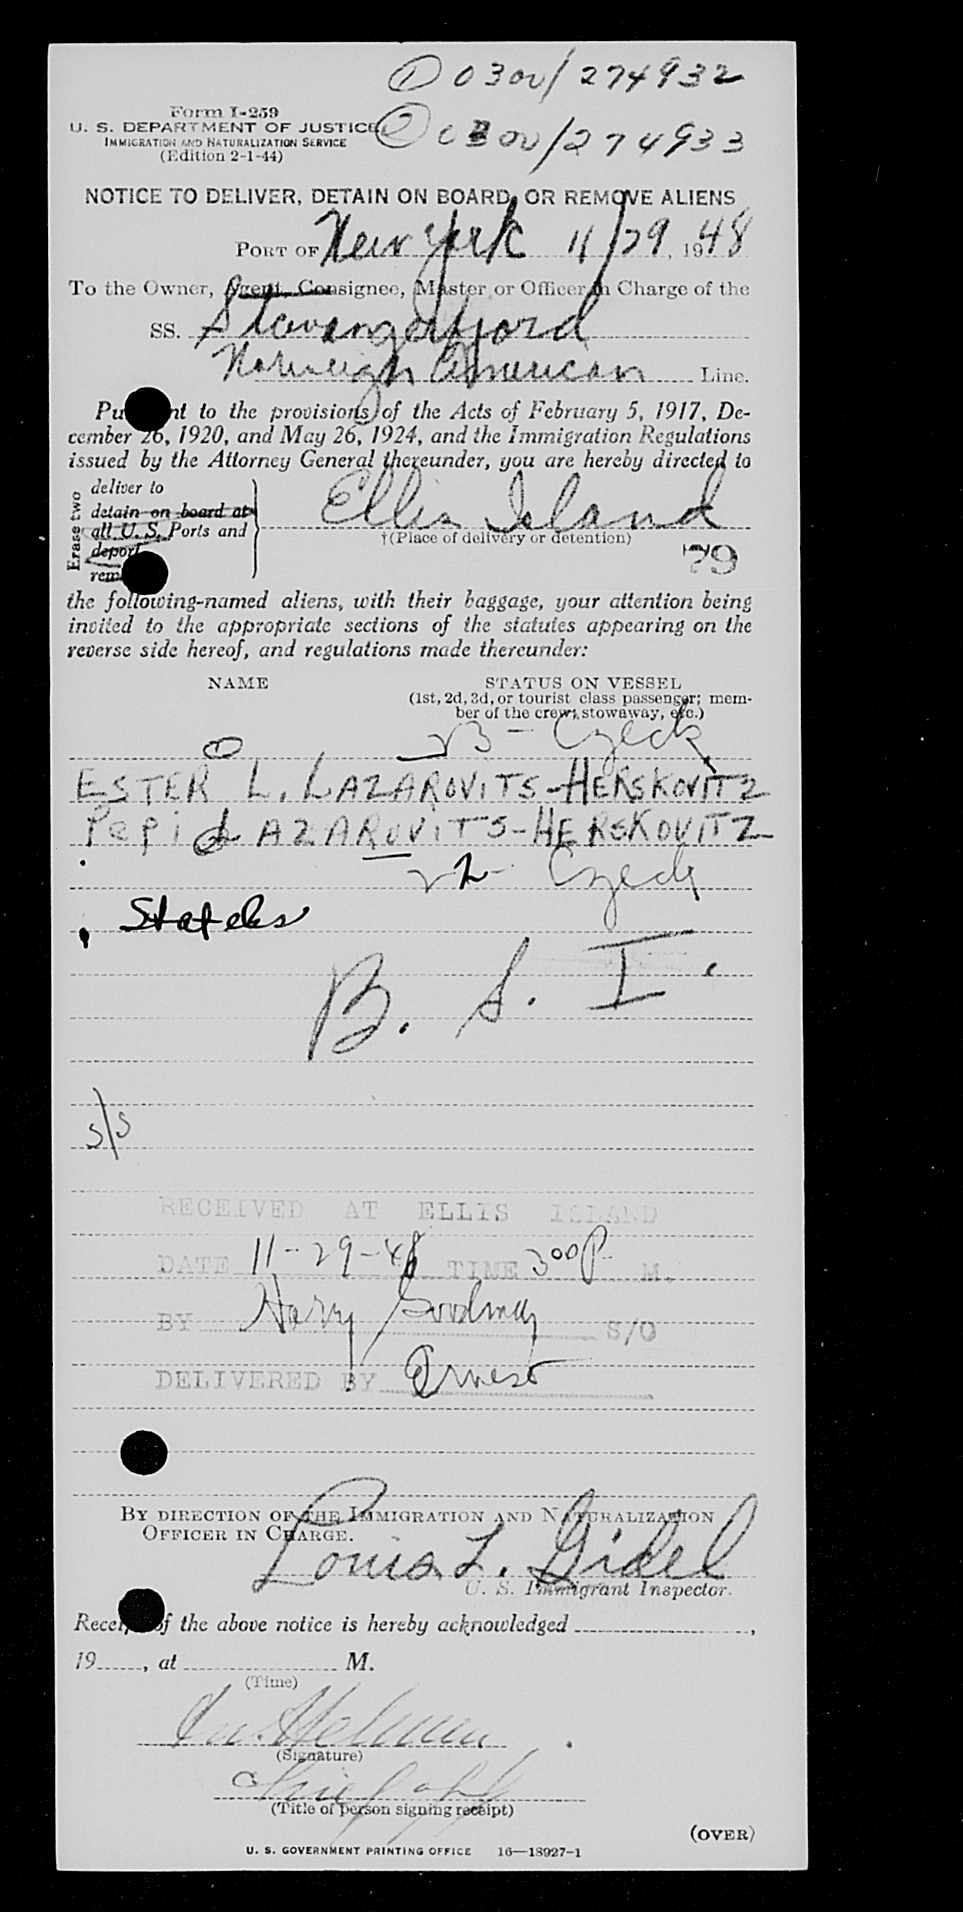 ① 0300/274932
Form I-259
U. S. DEPARTMENT OF JUSTICE ② 0300/274933
IMMIGRATION AND NATURALIZATION SERVICE
(Edition 2-1-44)
NOTICE TO DELIVER, DETAIN ON BOARD, OR REMOVE ALIENS
PORT OF New York 11/29, 1948
To the Owner, Agent, Consignee, Master or Officer in Charge of the
SS. Stavangerfjord
Norweigh American Line.
Pu nt to the provisions of the Acts of February 5, 1917, De-
cember 26, 1920, and May 26, 1924, and the Immigration Regulations
issued by the Attorney General thereunder, you are hereby directed to
Erase two
deliver to
detain on board at
all U. S. Ports and
deport
rem
Ellis Island
†(Place of delivery or detention)
79
the following-named aliens, with their baggage, your attention being
invited to the appropriate sections of the statutes appearing on the
reverse side hereof, and regulations made thereunder:
NAME STATUS ON VESSEL
(1st, 2d, 3d, or tourist class passenger; mem-
ber of the crew, stowaway, etc.)
① 23 - Czech
ESTER L. LAZAROVITS-HERSKOVITZ
Pepi LAZAROVITS-HERSKOVITZ
22 - Czech
B. S. I.
S/S
RECEIVED AT ELLIS ISLAND
DATE 11-29-48 TIME 3 00 P. M.
BY Harry Goodman S/O
DELIVERED BY Ernest
BY DIRECTION OF THE IMMIGRATION AND NATURALIZATION
OFFICER IN CHARGE.
Louis L. Gidel
U. S. Immigrant Inspector.
Receipt of the above notice is hereby acknowledged ,
19 , at M.
(Time)
(Signature)
(Title of person signing receipt)
(OVER)
U. S. GOVERNMENT PRINTING OFFICE 16—18927-1